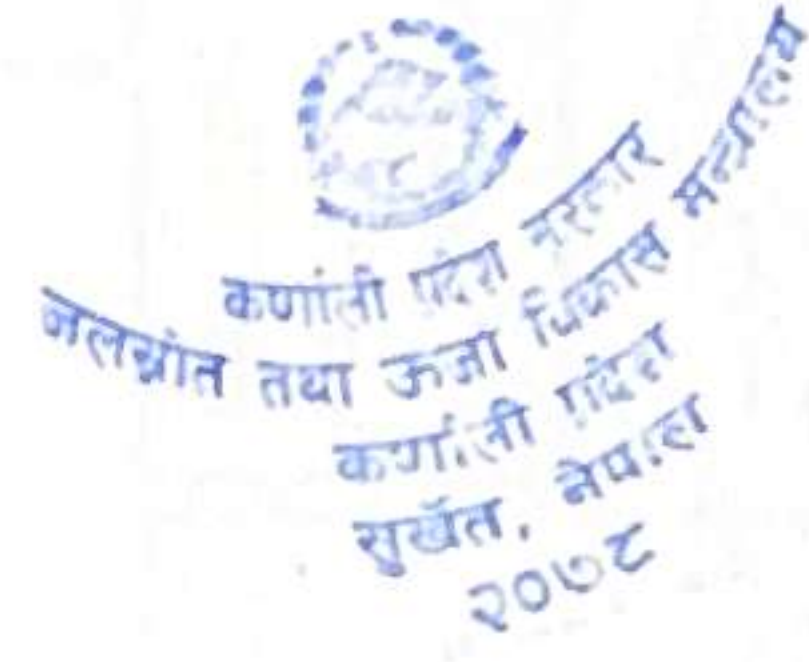 कर्णाली प्रदेश सरकार
जलस्रोत तथा ऊर्जा विकास मन्त्रालय
कर्णाली प्रदेश
सुर्खेत, नेपाल
२०७८